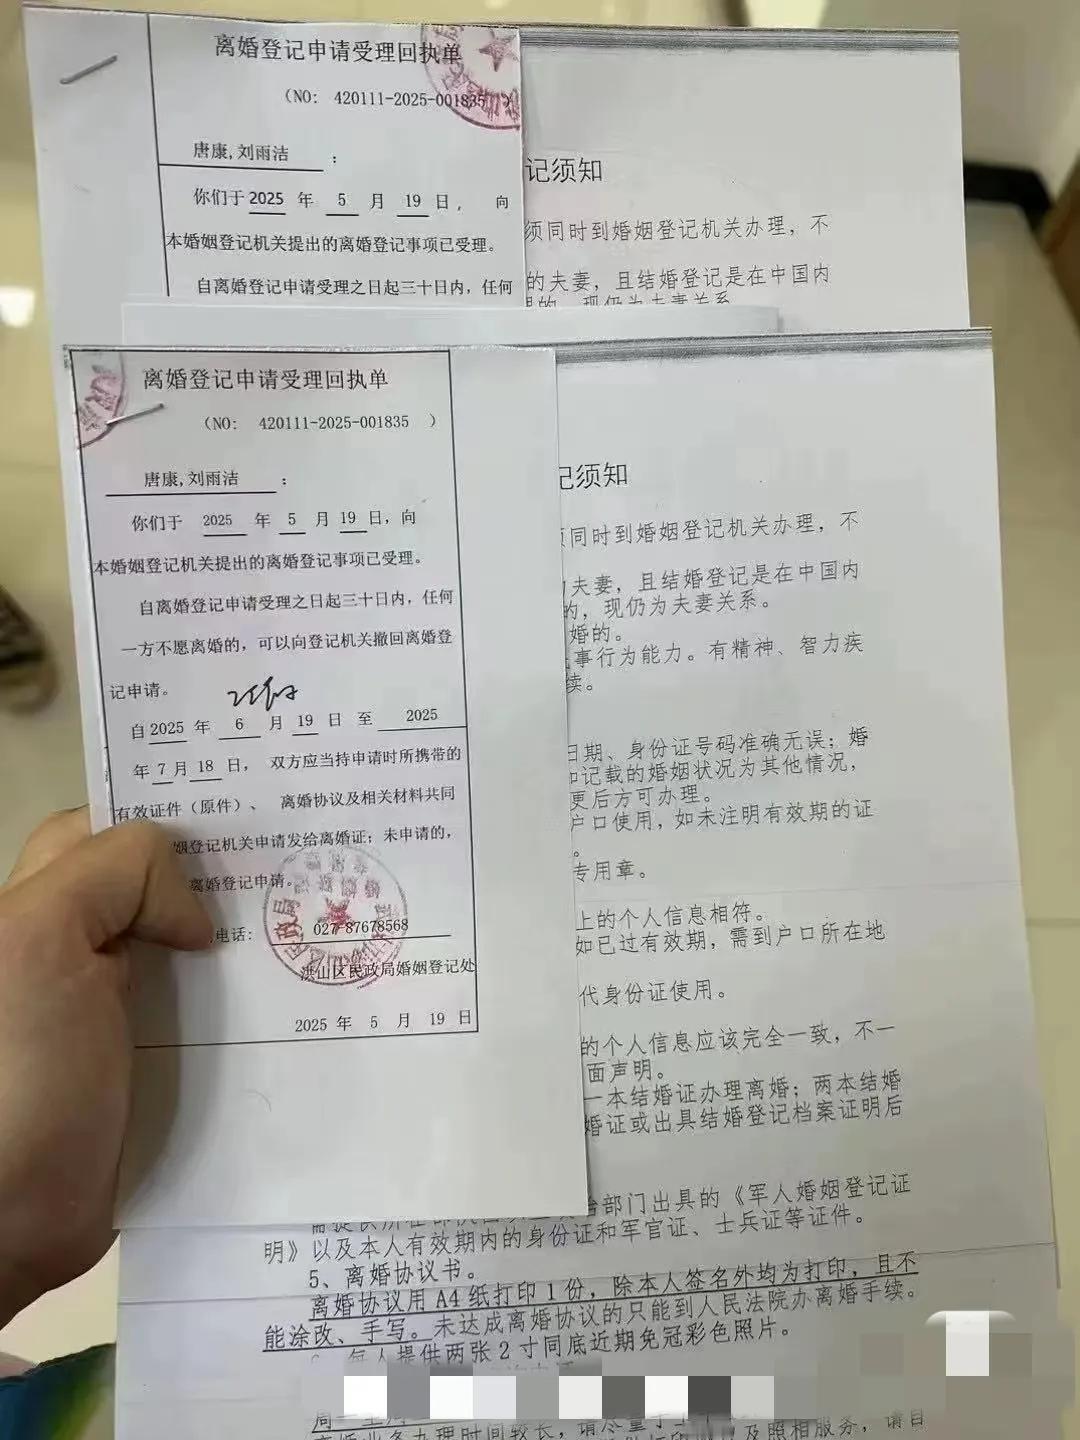 离婚登记申请受理回执单
（NO: 420111-2025-001835 ）
唐康,刘雨洁 ：
你们于 2025 年 5 月 19 日， 向
本婚姻登记机关提出的离婚登记事项已受理。
自离婚登记申请受理之日起三十日内，任何
记须知
须同时到婚姻登记机关办理，不
的夫妻，且结婚登记是在中国内
的，现仍为夫妻关系
离婚登记申请受理回执单
（NO: 420111-2025-001835 ）
唐康,刘雨洁 ：
你们于 2025 年 5 月 19 日，向
本婚姻登记机关提出的离婚登记事项已受理。
自离婚登记申请受理之日起三十日内，任何
一方不愿离婚的，可以向登记机关撤回离婚登
记申请。
自 2025 年 6 月 19 日 至 2025
年 7 月 18 日， 双方应当持申请时所携带的
有效证件（原件）、 离婚协议及相关材料共同
姻登记机关申请发给离婚证；未申请的，
离婚登记申请。
电话： 027-87678568
洪山区民政局婚姻登记处
2025 年 5 月 19 日
记须知
同时到婚姻登记机关办理，不
夫妻，且结婚登记是在中国内
的，现仍为夫妻关系。
婚的。
事行为能力。有精神、智力疾
续。
日期、身份证号码准确无误；婚
记载的婚姻状况为其他情况，
更后方可办理。
户口使用，如未注明有效期的证
。
专用章。
上的个人信息相符。
如已过有效期，需到户口所在地
代身份证使用。
的个人信息应该完全一致，不一
面声明。
一本结婚证办理离婚；两本结婚
婚证或出具结婚登记档案证明后
部门出具的《军人婚姻登记证
明》以及本人有效期内的身份证和军官证、士兵证等证件。
5、离婚协议书。
离婚协议用 A4 纸打印 1 份，除本人签名外均为打印，且不
能涂改、手写。未达成离婚协议的只能到人民法院办离婚手续。
每人提供两张 2 寸同底近期免冠彩色照片。
周一至周
离婚业务办理时间较长，请尽量于上
及照相服务，请自